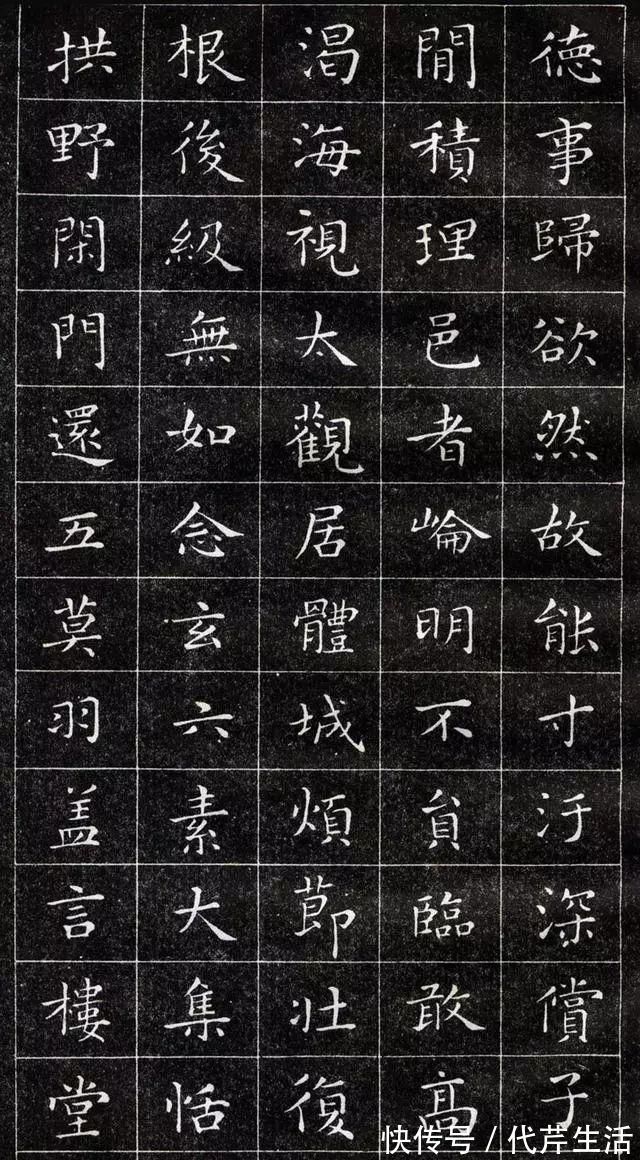 德事歸欲然故能寸汙深償子
閒積理邑者崘明不貟臨敢髙
渴海視太觀居體城煩節壯復
根後級無如念玄六素大集恬
拱野閑門還五莫羽盖言樓堂
快传号 / 代芹生活